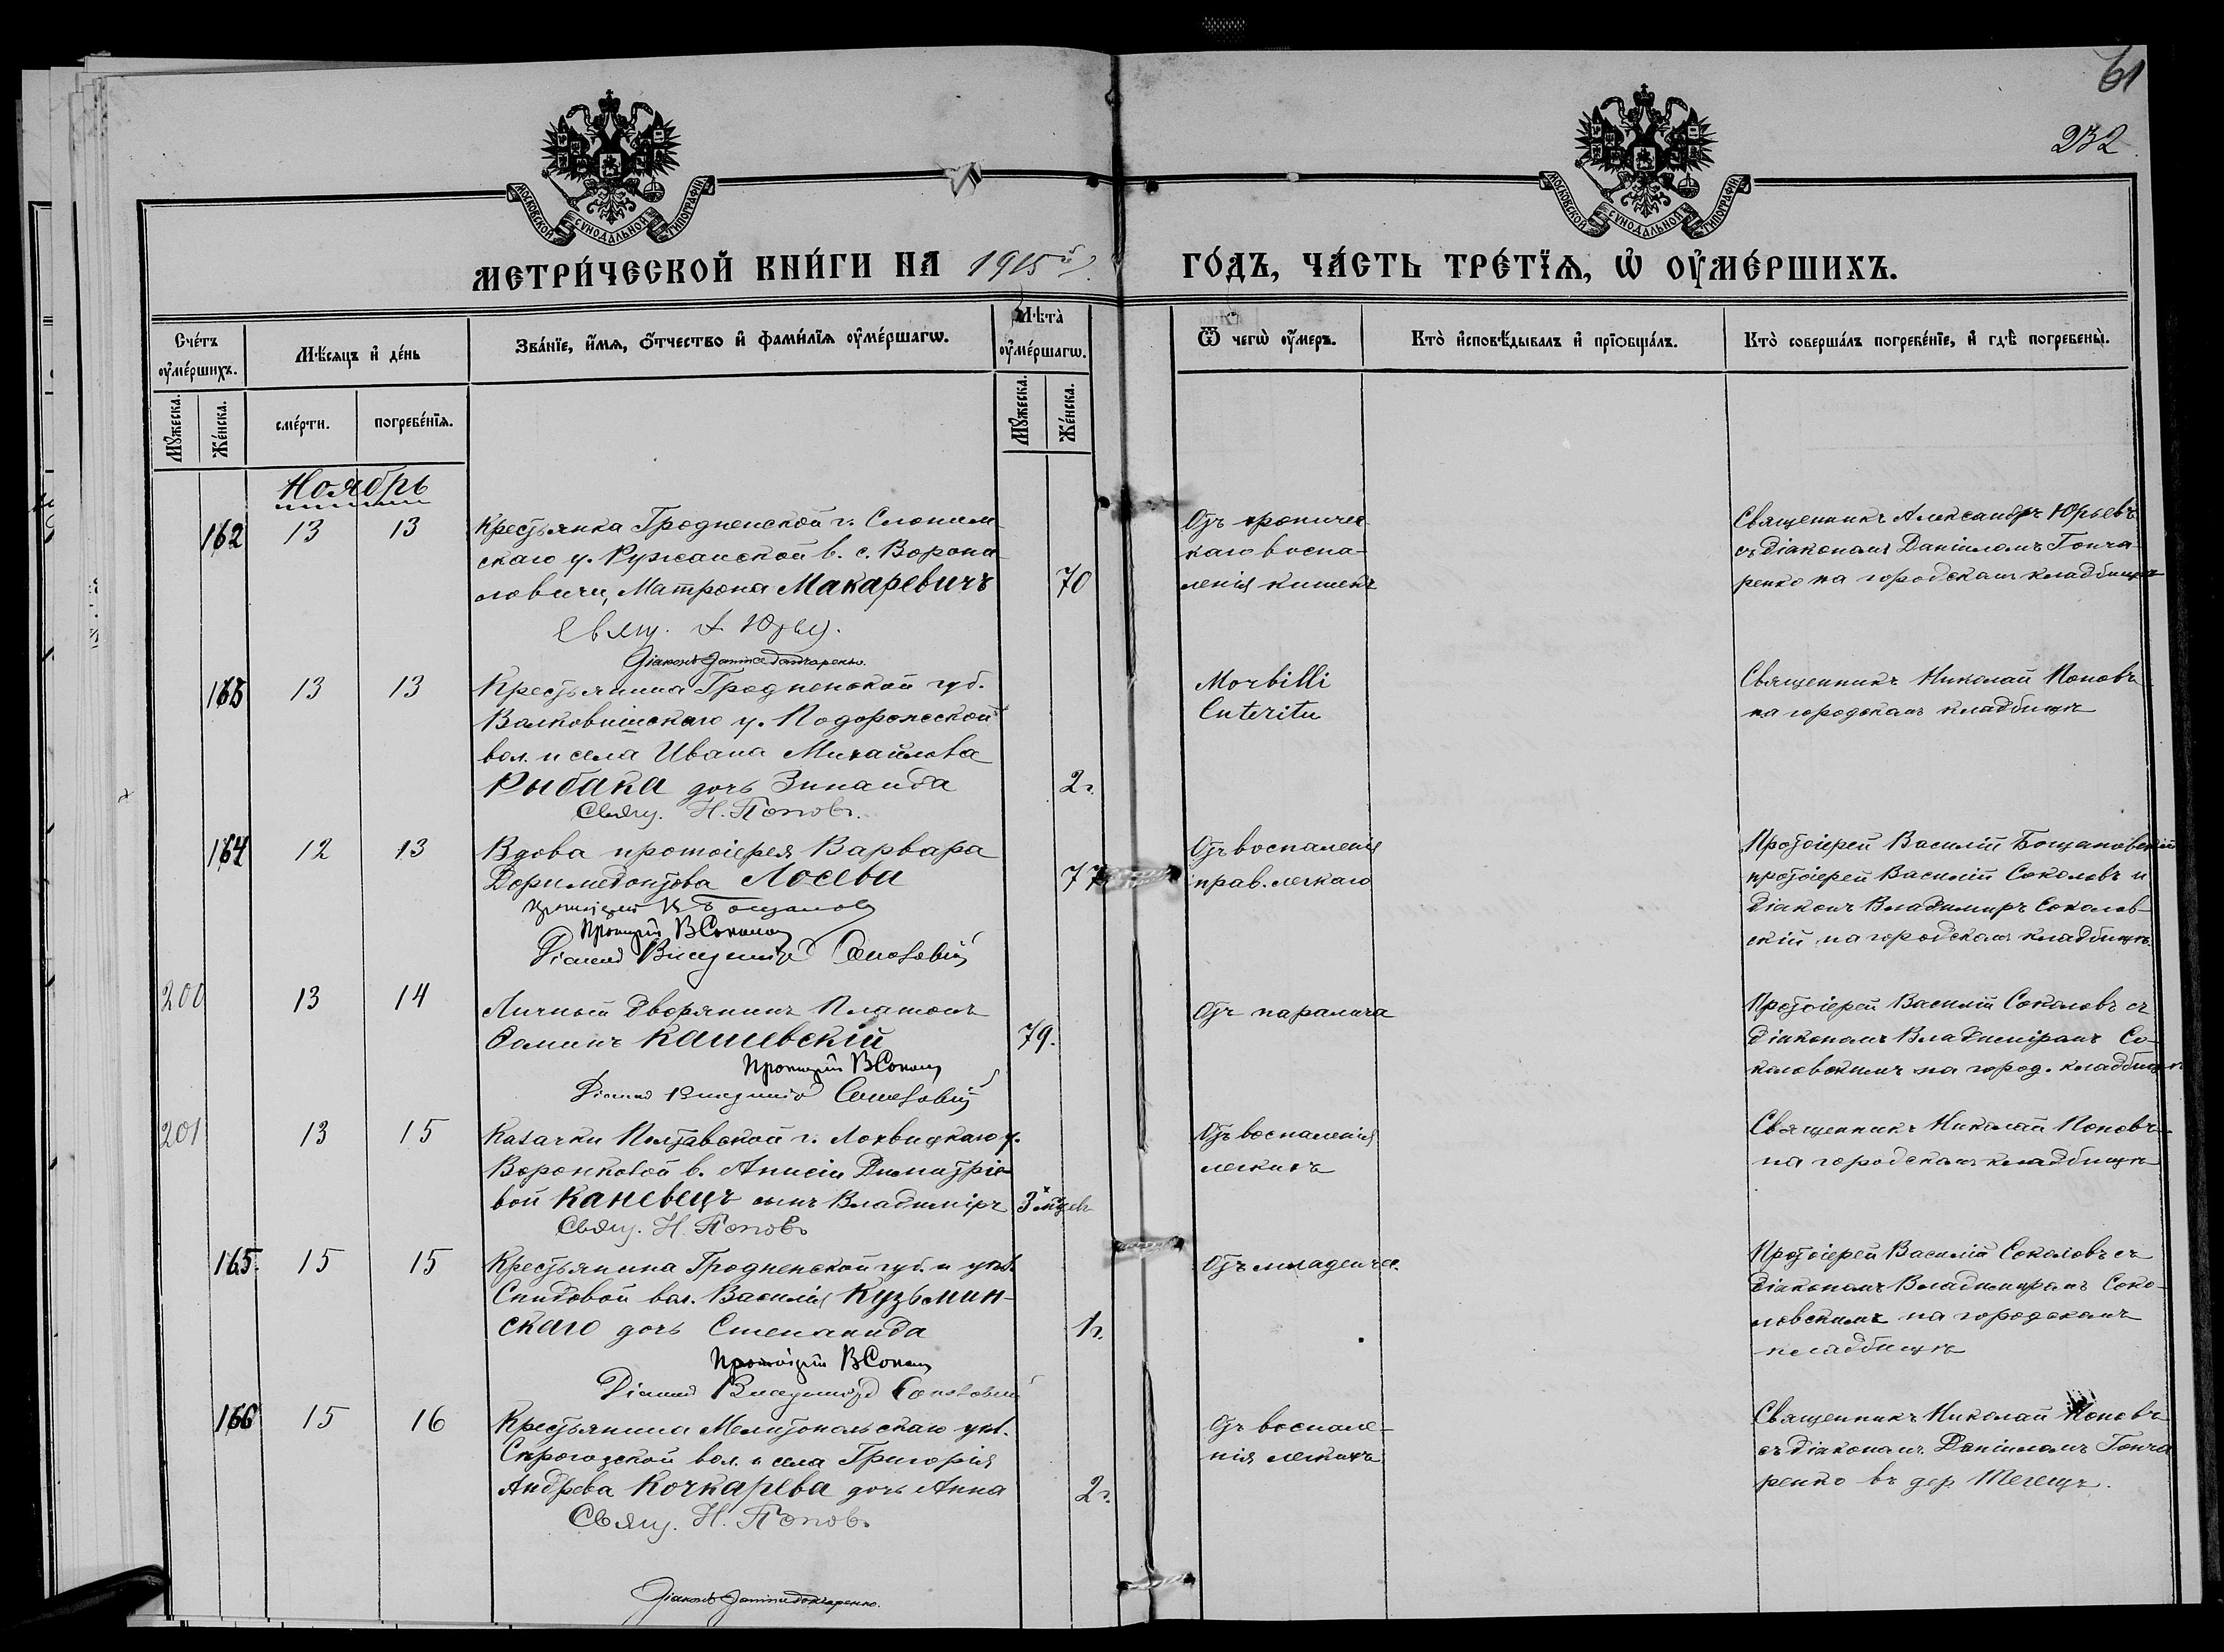 61
232
МОСКОВСКОЙ СѴНОДАЛЬНОЙ ТИПОГРАФІИ
МОСКОВСКОЙ СѴНОДАЛЬНОЙ ТИПОГРАФІИ
МЕТРИ́ЧЕСКОЙ КНИ́ГИ НА 1915й ГО́ДЪ, ЧА́СТЬ ТРЕ́ТЇѦ, Ѡ҆ ОУ҆МЕ́РШИХЪ.
Сче́тъ оу҆ме́ршихъ.
Мѣ́сяцъ и҆ де́нь
Зва́нїе, и҆́мѧ, ѻ҆́тчество и҆ фами́лїѧ оу҆ме́ршагѡ.
Лѣ́та оу҆ме́ршагѡ.
Ѿ чегѡ̀ оу҆́меръ.
Кто̀ и҆сповѣ́дывалъ и҆ прїѡбща́лъ.
Кто̀ соверша́лъ погребе́нїе, и҆ гдѣ̀ погребены̀.
Мꙋ́жеска. Же́нска.
сме́рти. погребе́нїѧ.
Мꙋ́жеска. Же́нска.
Ноябрь
162 13 13 Крестьянка Гродненской г. Слоним-
скаго у. Ружанской в. с. Ворони-
ловичи, Матрона Макаревичъ 70
Свящ. А. Юрьев.
Діаконъ Даніилъ Гончаренко.
Отъ хроничес-
каго воспа-
ленія кишекъ
Священникъ Александръ Юрьевъ
съ діакономъ Даніиломъ Гонча-
ренко на городскомъ кладбищѣ
163 13 13 Крестьянина Гродненской губ.
Волковишскаго у. Подоросской
вол. и села Ивана Михайлова
Рыбака дочь Зинаида 2 г.
Свящ. Н. Попов.
Morbilli
Enteritu
Священникъ Николай Поповъ
на городскомъ кладбищѣ
164 12 13 Вдова протоіерея Варвара
Доримедонтова Лосева 77
Протоіерей В. Бощанов
Протоіерей В Соколов
Діаконъ Владиміръ Соколовскій
Отъ воспаленія
прав. легкаго
Протоіерей Василій Бощановскій
протоіерей Василій Соколовъ и
діаконъ Владимиръ Соколов-
скій на городскомъ кладбищѣ.
200 13 14 Личный дворянинъ Платонъ
Фоминъ Кашевскій 79.
Протоіерей В Соколов
Діаконъ Владиміръ Соколовскій
Отъ паралича
Протоіерей Василій Соколовъ съ
діакономъ Владиміромъ Со-
коловскимъ на город. кладбищѣ
201 13 15 Казачки Полтавской г. Лохвицкаго у.
Воронковой в. Анисіи Димитріе-
вой Каневецъ сынъ Владиміръ 3 мѣсяц.
Свящ. Н. Поповъ
Отъ воспаленія
легкихъ
Священникъ Николай Поповъ
на городскомъ кладбищѣ
165 15 15 Крестьянина Гродненской губ. и уѣзд.
Скидовой вол. Василія Кузьмин-
скаго дочь Степанида 1 г.
Протоіерей В Соколов
Діаконъ Владиміръ Соколовскій
Отъ младенчес.
Протоіерей Василій Соколовъ съ
діакономъ Владимиромъ Соко-
ловскимъ на городскомъ
кладбищѣ
166 15 16 Крестьянина Мелитопольскаго уѣз.
Серогозской вол. и села Григорія
Андрева Кочкарева дочь Анна 2 г.
Свящ. Н. Поповъ
Діаконъ Даніилъ Гончаренко.
Отъ воспале-
нія легкихъ
Священникъ Николай Поповъ
съ діакономъ Даніиломъ Гонча
ренко въ дер.